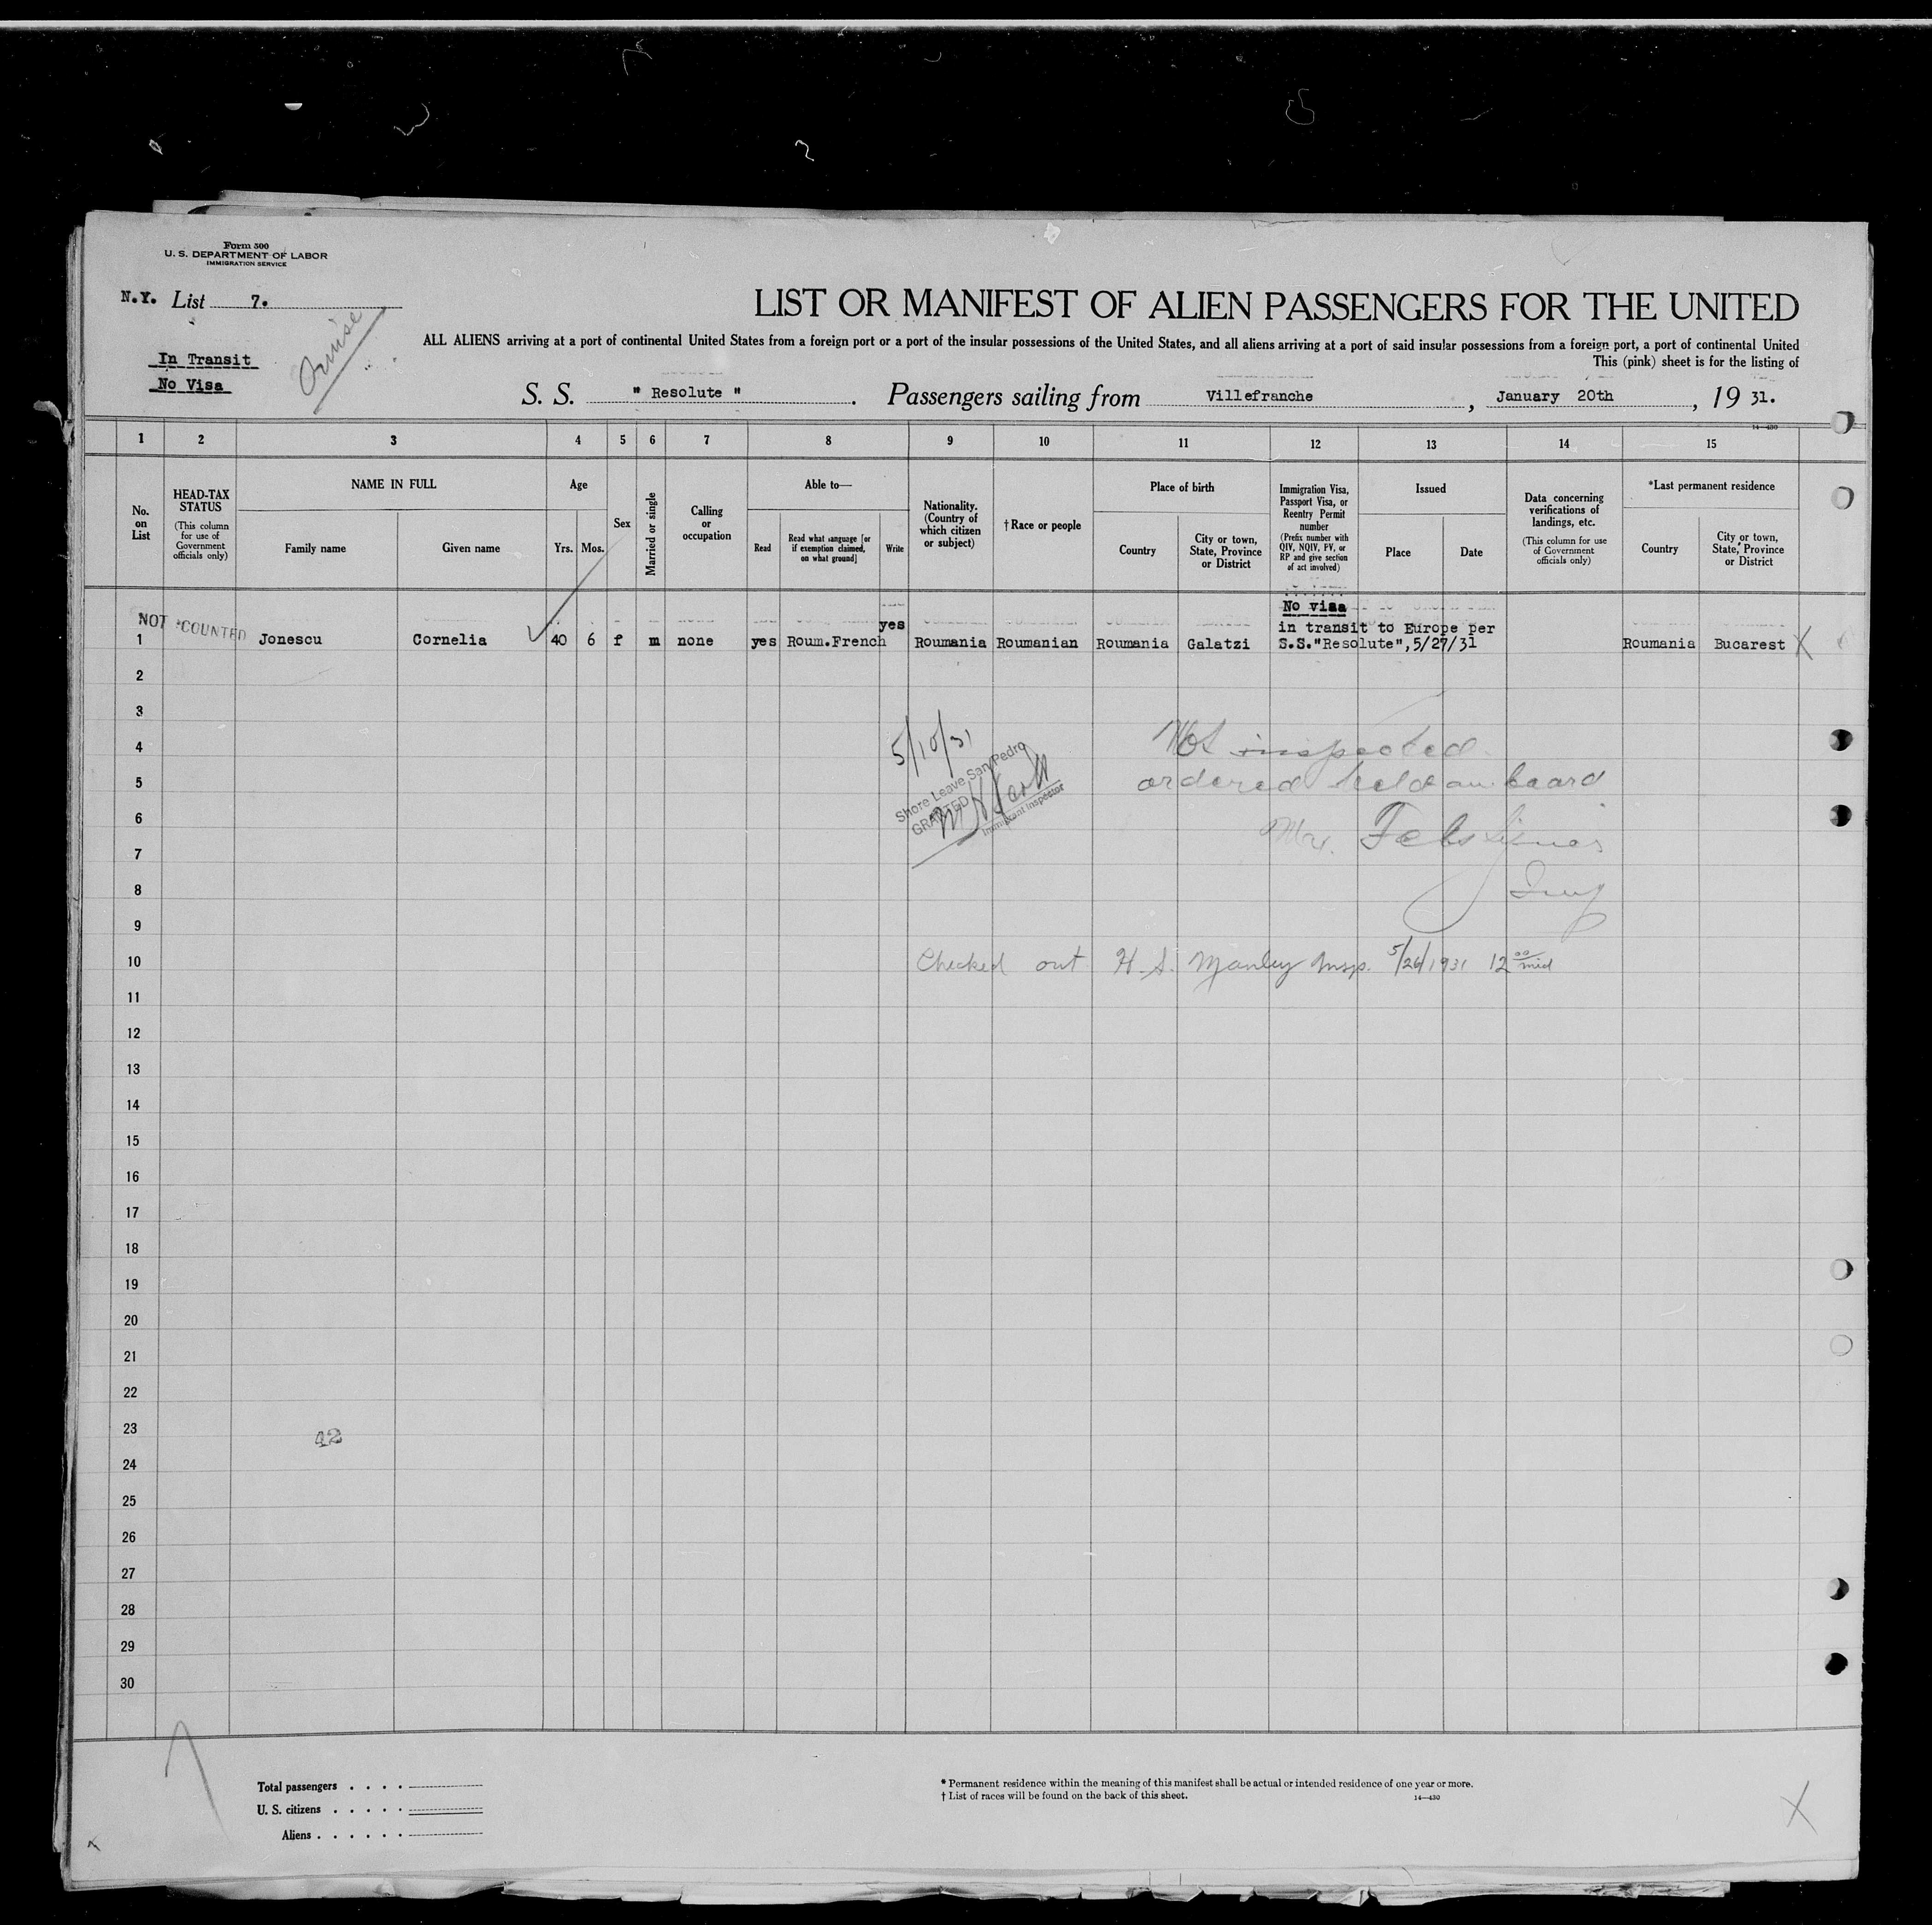 Form 500
U. S. DEPARTMENT OF LABOR
IMMIGRATION SERVICE
N.Y. List 7.
In Transit
No Visa
LIST OR MANIFEST OF ALIEN PASSENGERS FOR THE UNITED
ALL ALIENS arriving at a port of continental United States from a foreign port or a port of the insular possessions of the United States, and all aliens arriving at a port of said insular possessions from a foreign port, a port of continental United
This (pink) sheet is for the listing of
S. S. " Resolute ". Passengers sailing from Villefranche, January 20th, 19 31.
14—430
1 2 3 4 5 6 7 8 9 10 11 12 13 14 15
No. on List
HEAD-TAX STATUS
(This column for use of Government officials only)
NAME IN FULL
Family name
Given name
Age
Yrs. Mos.
Sex
Married or single
Calling or occupation
Able to—
Read
Read what language [or if exemption claimed, on what ground]
Write
Nationality. (Country of which citizen or subject)
†Race or people
Place of birth
Country
City or town, State, Province or District
Immigration Visa, Passport Visa, or Reentry Permit number
(Prefix number with QIV, NQIV, PV, or RP and give section of act involved)
Issued
Place
Date
Data concerning verifications of landings, etc.
(This column for use of Government officials only)
*Last permanent residence
Country
City or town, State, Province or District
NOT COUNTED
No visa
yes in transit to Europe per
1 Jonescu Cornelia 40 6 f m none yes Roum.French Roumania Roumanian Roumania Galatzi S.S."Resolute",5/27/31 Roumania Bucarest X
2
3
4
5
6
7
8
9
10
11
12
13
14
15
16
17
18
19
20
21
22
23
24
25
26
27
28
29
30
5/10/31
Shore Leave San Pedro
GRANTED
Immigrant Inspector
Not inspected
ordered held on board
Checked out H. S. Manley Insp. 5/26/1931 12 00 mid
42
Total passengers . . . .
U. S. citizens . . . . .
Aliens . . . . . .
* Permanent residence within the meaning of this manifest shall be actual or intended residence of one year or more.
† List of races will be found on the back of this sheet.
14—430
X